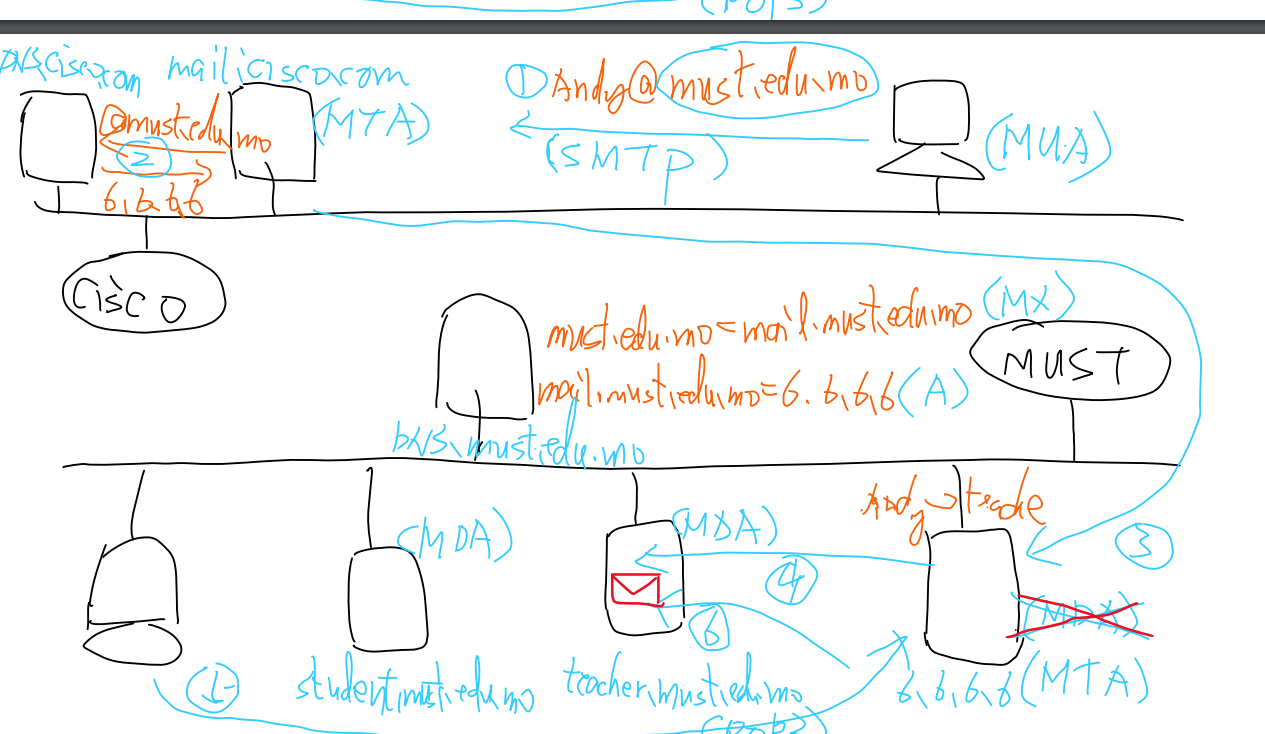 (POP3)
DNS.cisco.com mail.cisco.com
① Andy@must.edu.mo
@must.edu.mo
(MTA)
(SMTP)
(MUA)
②
6.6.6.6
CISCO
must.edu.mo=mail.must.edu.mo (MX)
MUST
mail.must.edu.mo=6.6.6.6 (A)
DNS.must.edu.mo
Andy→teache
(MDA)
(MDA)
③
④
(MDA)
⑥
student.must.edu.mo
teacher.must.edu.mo
6.6.6.6 (MTA)